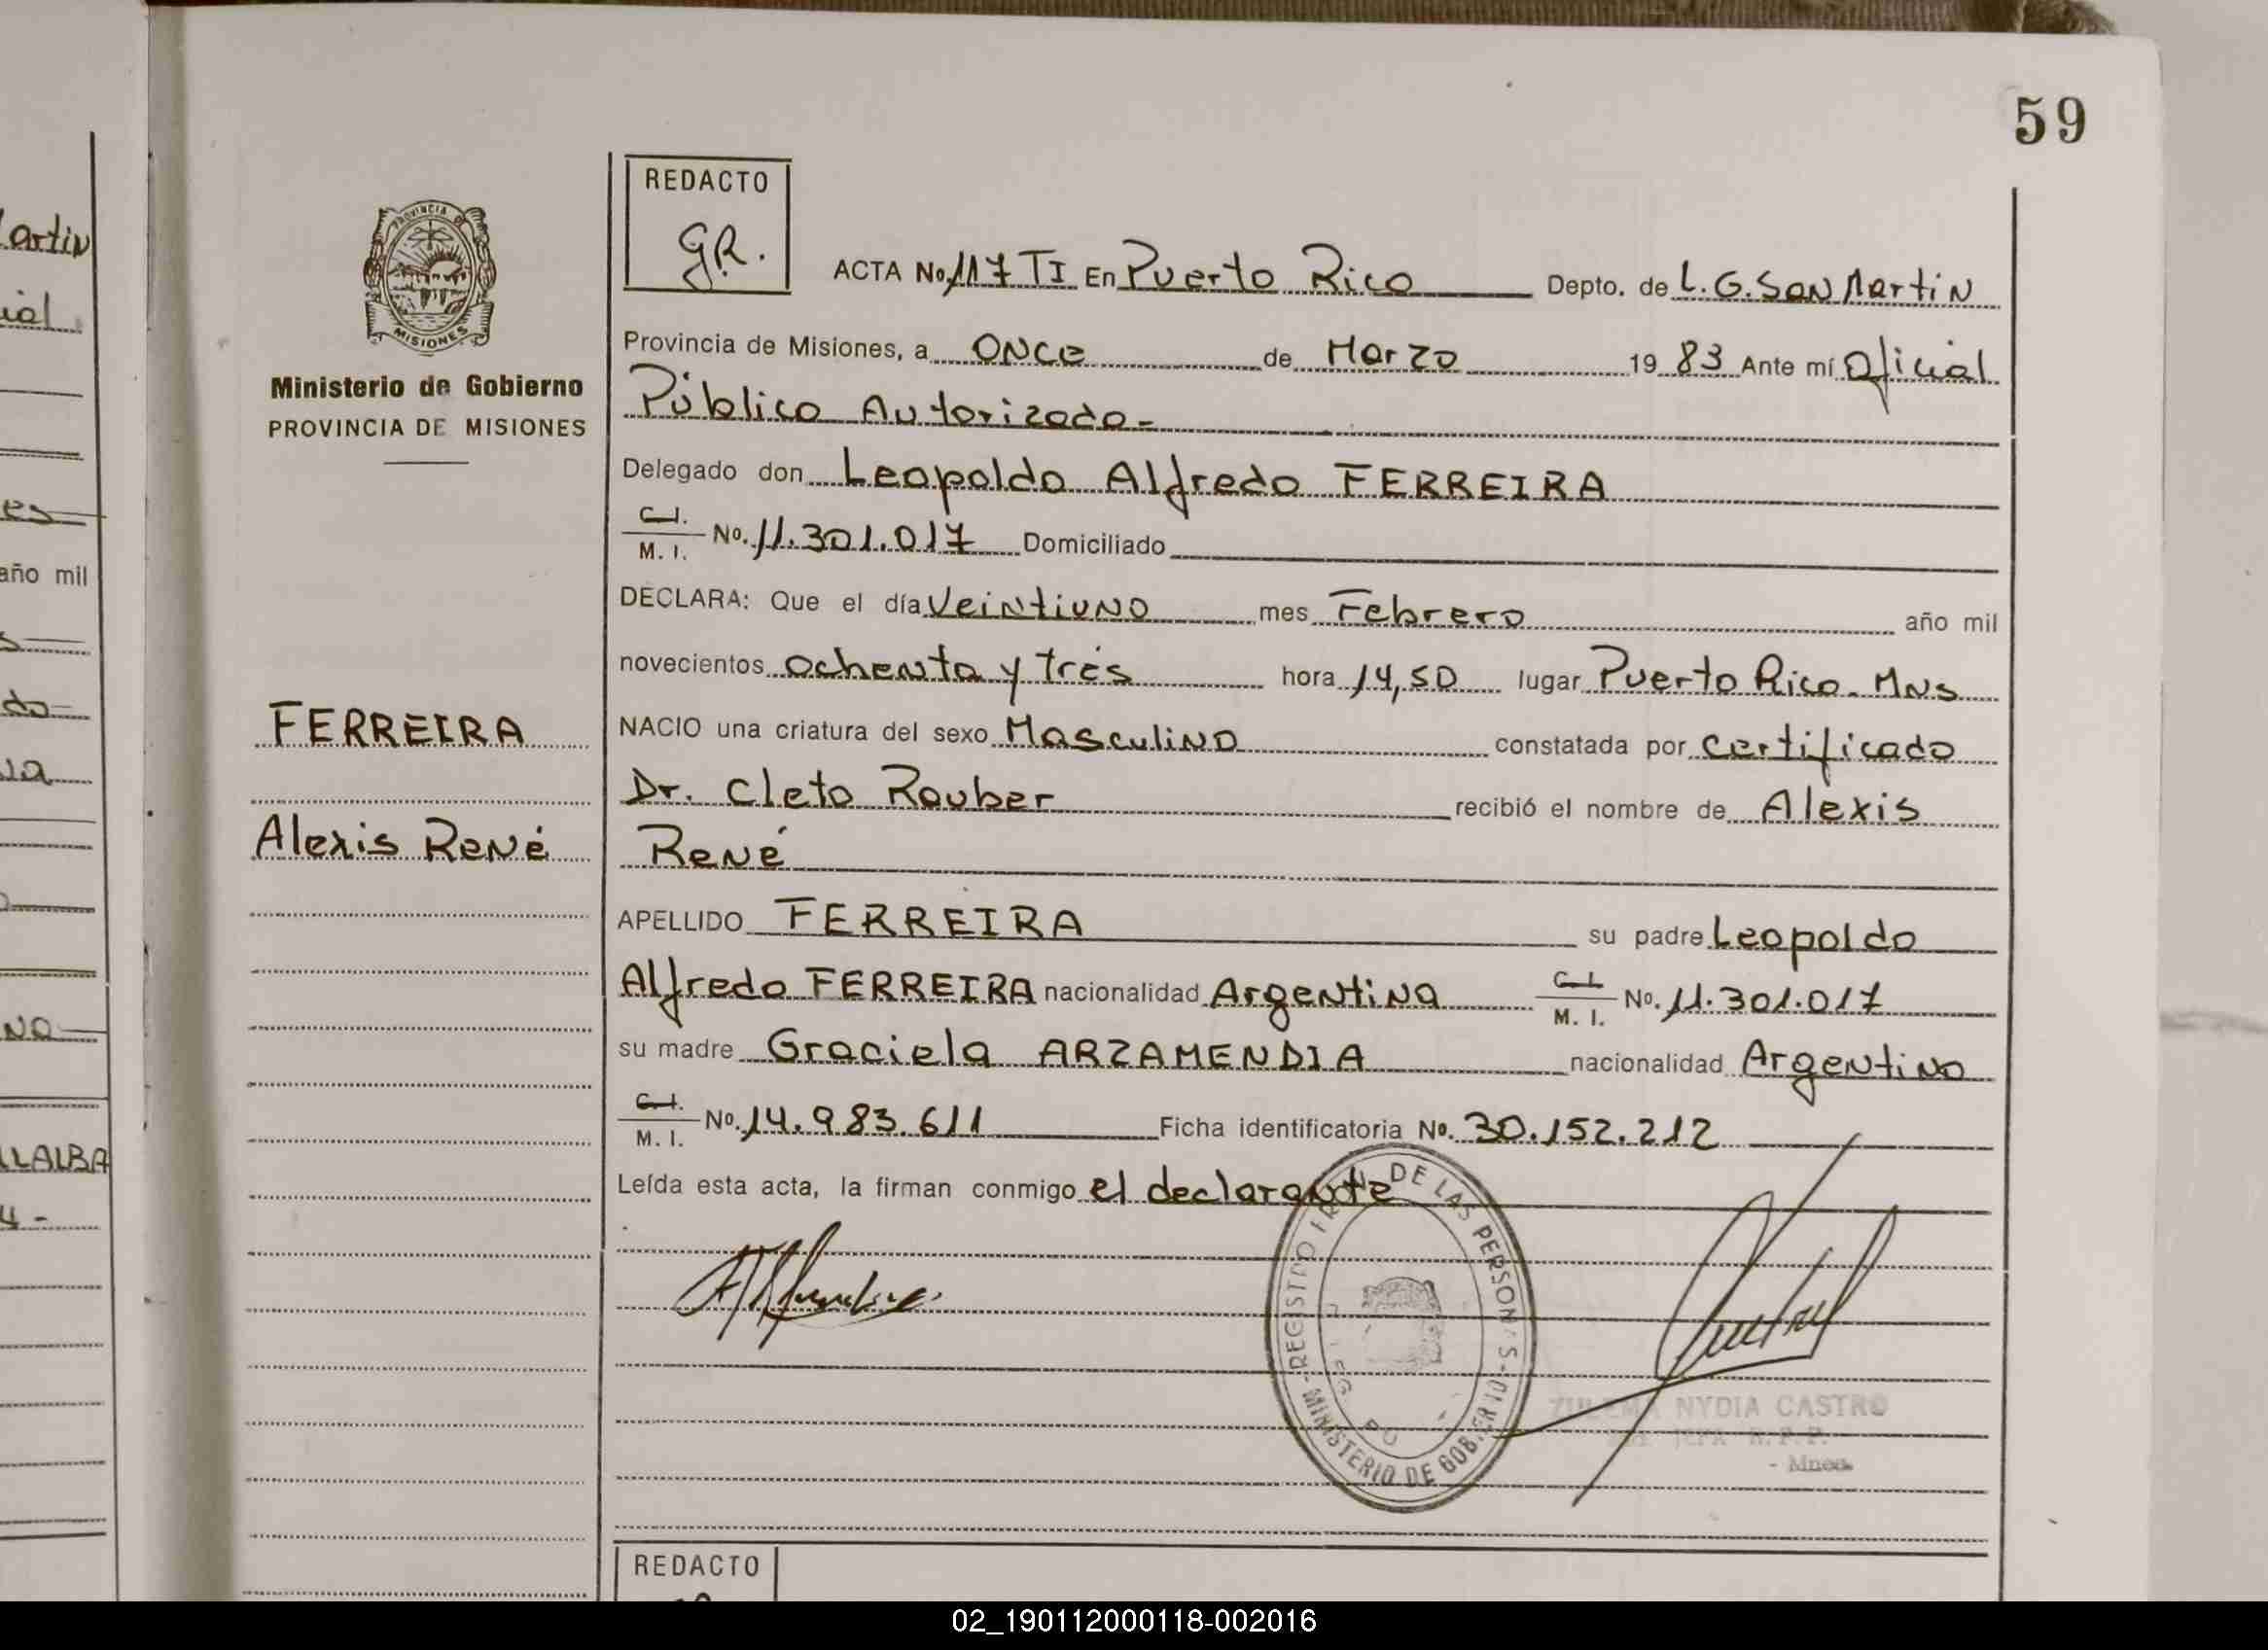 59
REDACTO
GR.
ACTA No. 117 TI En Puerto Rico Depto. de L.G. San Martin
PROVINCIA DE
MISIONES
Provincia de Misiones, a once de Marzo 19 83 Ante mí Oficial
Ministerio de Gobierno
PROVINCIA DE MISIONES
Público Autorizado-
Delegado don Leopoldo Alfredo FERREIRA
C.I.
M. I. No. 11.301.017 Domiciliado
DECLARA: Que el día Veintiuno mes Febrero año mil
novecientos ochenta y trés hora 14,50 lugar Puerto Rico. Mns
FERREIRA
NACIO una criatura del sexo Masculino constatada por certificado
Dr. Cleto Rauber recibió el nombre de Alexis
Alexis René
René
APELLIDO FERREIRA su padre Leopoldo
Alfredo FERREIRA nacionalidad Argentina C.I. M. I. No. 11.301.017
su madre Graciela ARZAMENDIA nacionalidad Argentina
C.I.
M. I. No. 14.983.611 Ficha identificatoria No. 30.152.212
Leída esta acta, la firman conmigo el declarante
REGISTRO DE LAS PERSONAS
MINISTERIO DE GOBIERNO
ZULEMA NYDIA CASTRO
R.P.P.
- Mnes.
REDACTO
artin
ial
es
año mil
do
na
LLALBA
4-
02_190112000118-002016